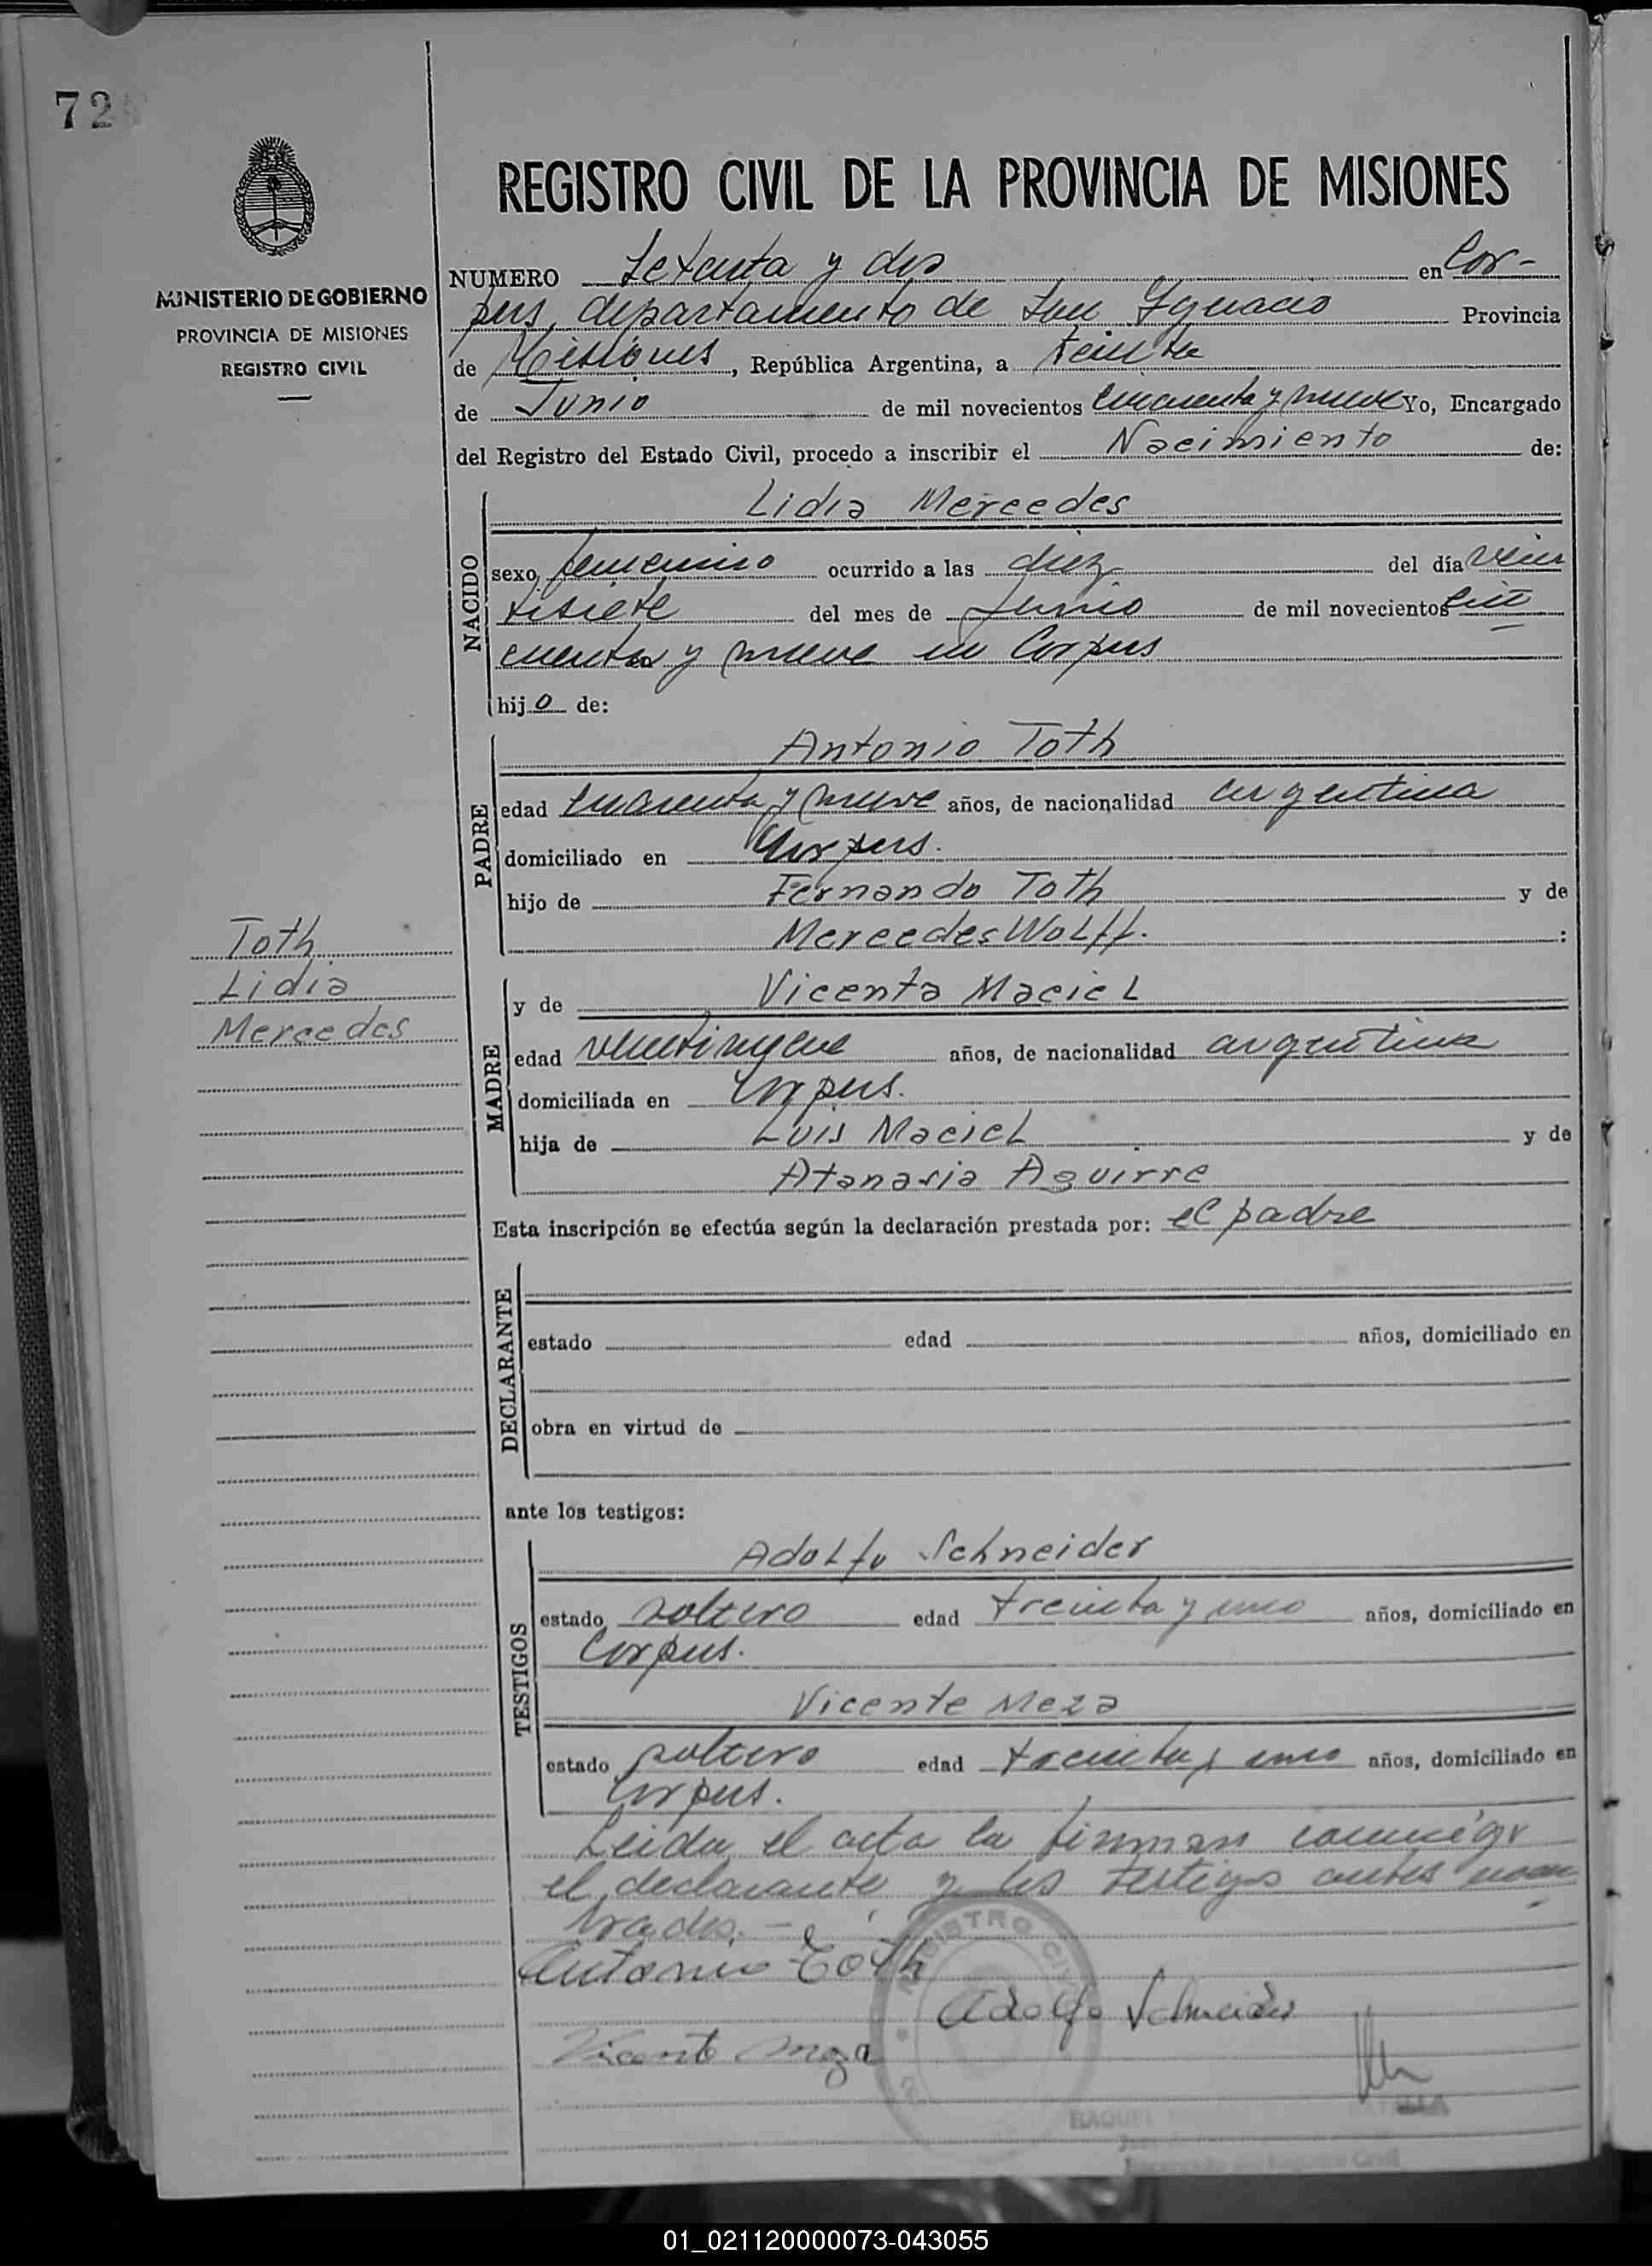 72
REGISTRO CIVIL DE LA PROVINCIA DE MISIONES
MINISTERIO DE GOBIERNO
PROVINCIA DE MISIONES
REGISTRO CIVIL
NUMERO Setenta y dos en Cor-
pus, departamento de San Ignacio Provincia
de Misiones, República Argentina, a treinta
de Junio de mil novecientos cincuenta y nueve Yo, Encargado
del Registro del Estado Civil, procedo a inscribir el Nacimiento de:
NACIDO
Lidia Mercedes
sexo femenino ocurrido a las diez del día vein
tisiete del mes de Junio de mil novecientos cin
cuenta y nueve en Corpus
hijo de:
PADRE
Antonio Toth
edad cuarenta y nueve años, de nacionalidad argentina
domiciliado en Corpus.
hijo de Fernando Toth y de
Mercedes Wolff. :
Toth
Lidia
Mercedes
MADRE
y de Vicenta Maciel
edad veintinueve años, de nacionalidad argentina
domiciliada en Corpus.
hija de Luis Maciel y de
Atanasia Aguirre
Esta inscripción se efectúa según la declaración prestada por: el padre
DECLARANTE
estado edad años, domiciliado en
obra en virtud de
ante los testigos:
TESTIGOS
Adolfo Schneider
estado soltero edad treinta y uno años, domiciliado en
Corpus.
Vicente Meza
estado soltero edad treinta y uno años, domiciliado en
Corpus.
Leida el acta la firman conmigo
el declarante y los testigos antes nom
brados. -
Antonio Toth
Adolfo Schneider
Vicente Meza
REGISTRO CIVIL
RAQUEL
Encargada del Registro Civil
01_021120000073-043055